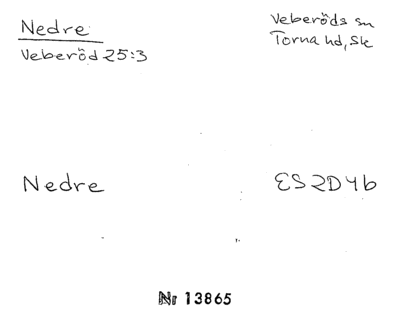 Nedre
Veberöds sn
Veberöd 25:3
Torna hd, Sk
Nedre
ES 2D4b
Nr 13865